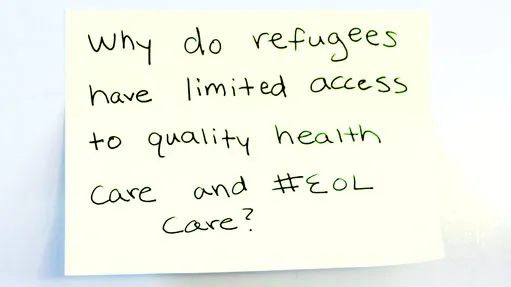 Why do refugees
have limited access
to quality health
care and #EOL
care?